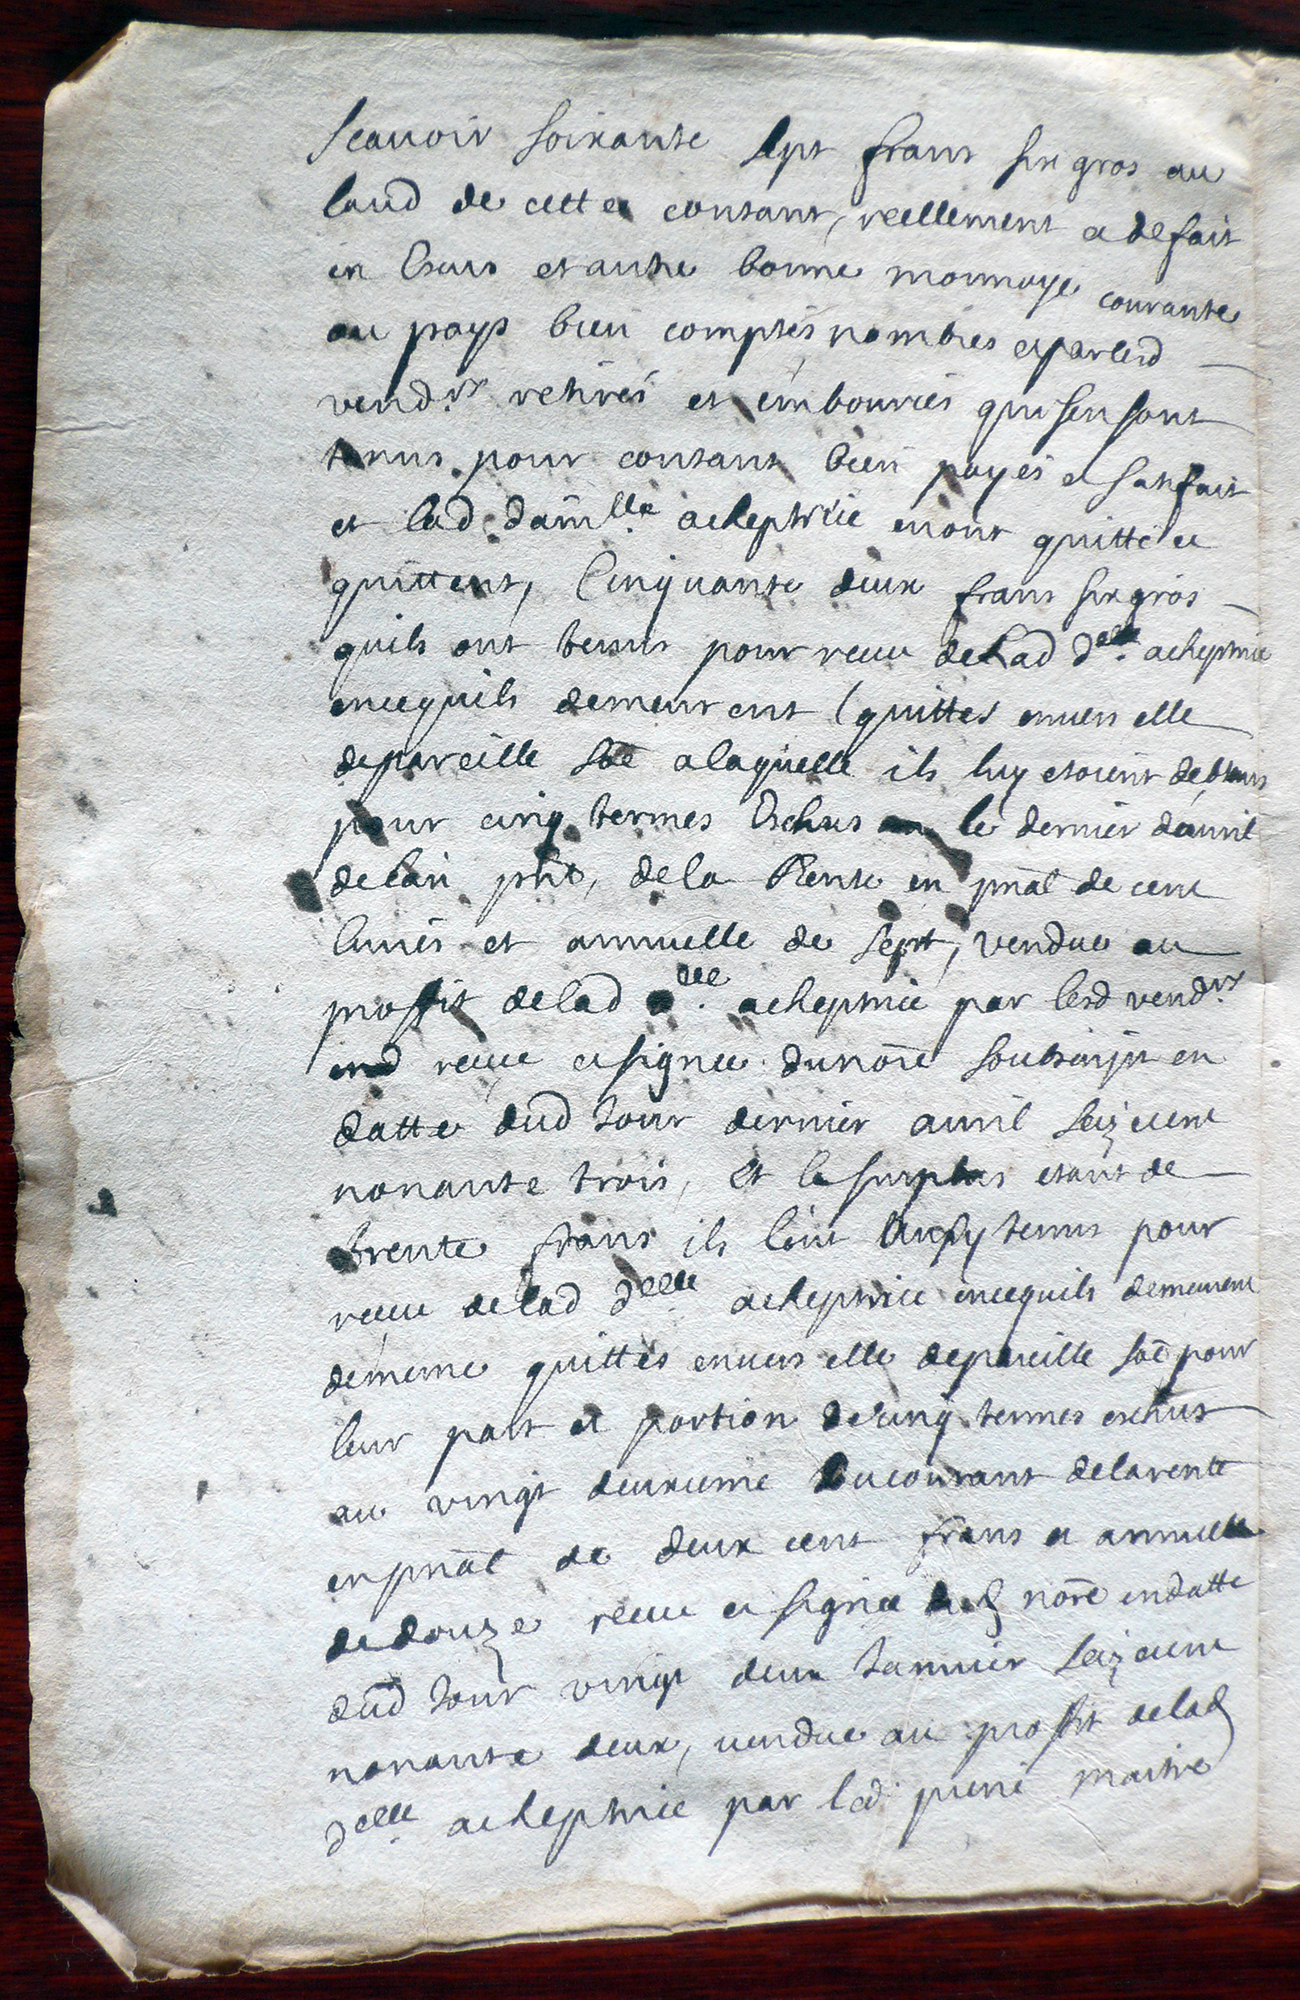 scauoir soixante sept frans six gros au
laud de cette contant, reellement et de fait
en Escus et autre bonne monnoye courante
au pays bien comptés nombres et par lesd
vend.rs retirés et embourcés qui sen sont
tenus pour contant bien payés et satisfait
et lad. dam.lle acheptrice en ont quitté et
quittent, Cinquante deux frans six gros
quils ont tenus pour receu de lad d.elle acheptrice
en ce quils demeurent quittes enuers elle
de pareille sõe a laquelle ils luy etoient debteurs
pour cinq termes Eschus le dernier dauril
de lan pñt, de la Rente en pñal de cent
liures et annuelle de sept, vendue au
proffit de lad d.elle acheptrice par lesd vend.rs
receue et signee du nõre soubscript en
datte dud Jour dernier auril seize cent
nonante trois, et le surplus etant de
trente frans ils lont aussy tenus pour
receu de lad d.elle acheptrice en ce quils demeurent
de meme quittes enuers elle de pareille sõe pour
leur part et portion de cinq termes eschus
au vingt deuxieme du courant de la rente
en pñal de deux cent frans et annuelle
de douze receue et signee dud nõre en datte
dud Jour vingt deux Januier seize cent
nonante deux, vendue au proffit de lad
d.elle acheptrice par led maitre